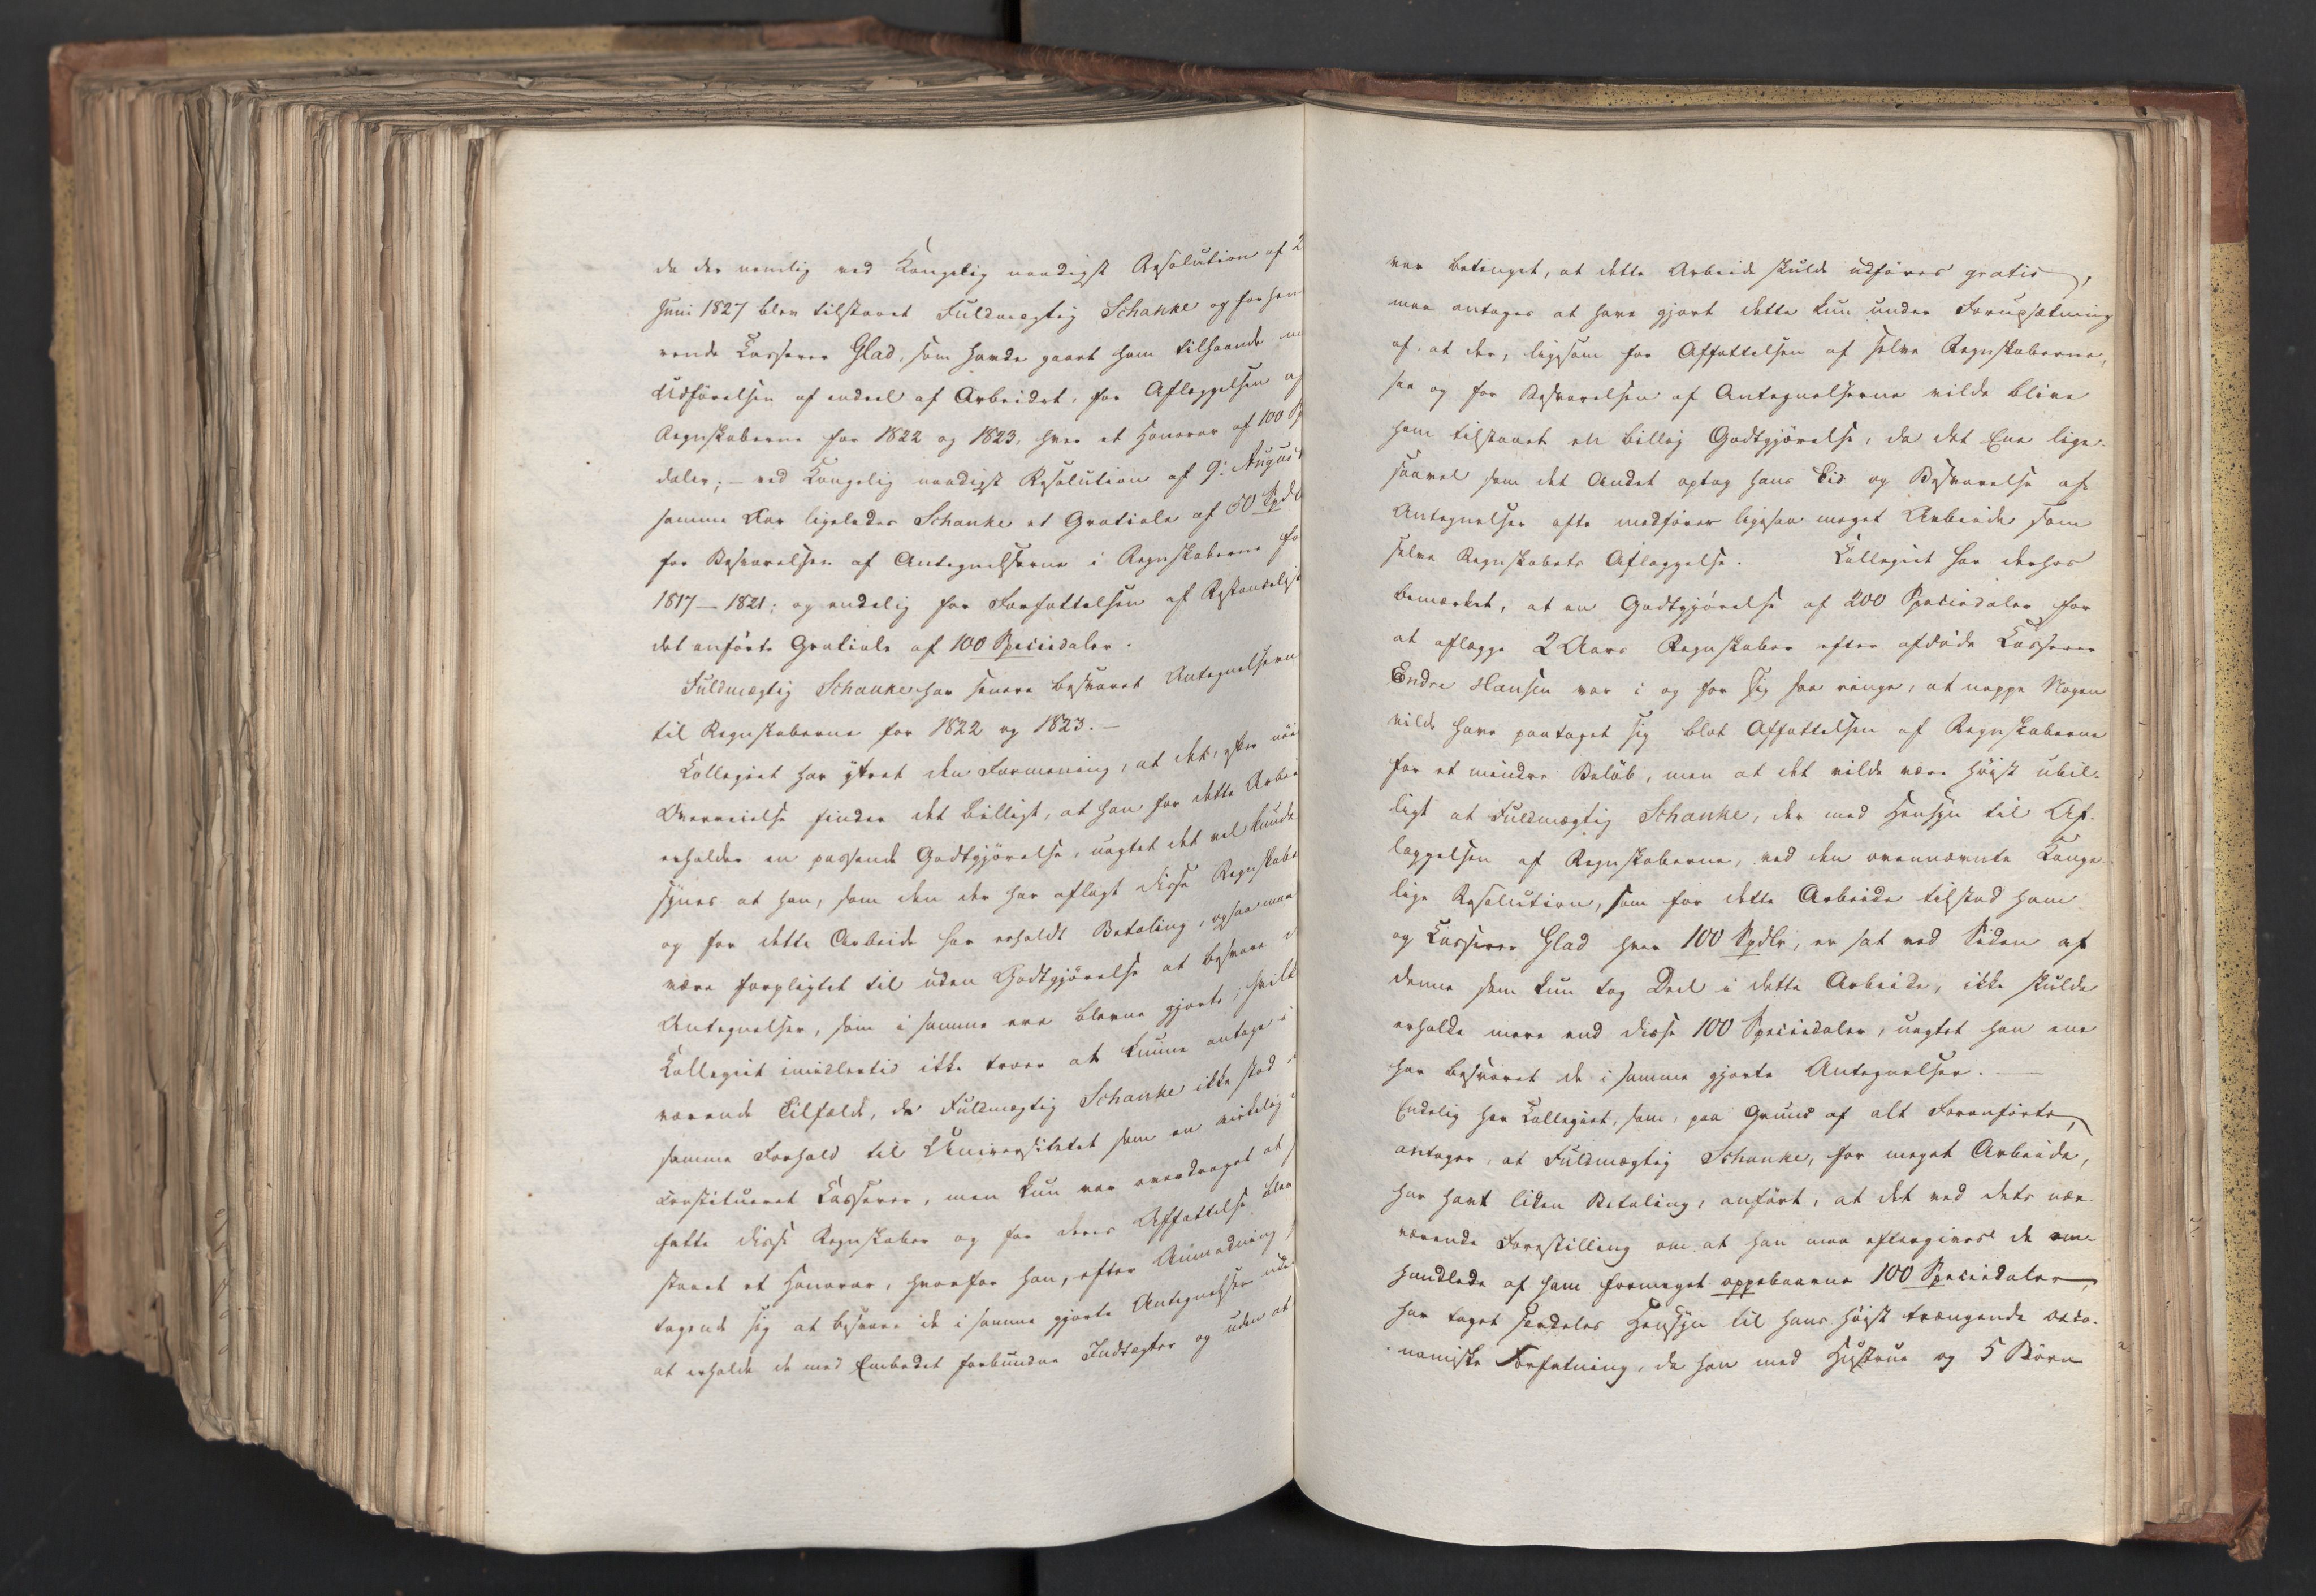 da der nemlig ved Kongelig naadigst Resolution af 2
Juni 1827 blev tilstaaet Fuldmægtig Schanke og forhen
rende Kasserer Glad, som havde gaaet ham tilhaande
Udførelsen af endeel af Arbeidet, for Aflæggelsen af
Regnskaberne for 1822 og 1823, hver et Honorar af 100 Sp
daler; – ved Kongelig naadigst Resolution af 9: August
samme Aar ligeledes Schanke et Gratiale af 50 Spdlr
for Besvarelsen af Antegnelserne i Regnskaberne fo
1817 – 1821; og endelig for Forfattelsen af Restanceliste
det anførte Gratiale af 100 Speciedaler.
Fuldmægtig Schanke har senere besvaret Antegnelserne
til Regnskaberne for 1822 og 1823. –
Collegiet har yttret den Formening, at det, efter nøie
Overveielse finder det billigt, at han for dette Arbei
erholder en passende Godtgjørelse, uagtet det vel kunde
synes at han, som den der har aflagt disse Regnskabe
og for dette Arbeide har erholdt Betaling, ogsaa maa
være forpligtet til uden Godtgjørelse at besvare d
Antegnelser, som i samme ere blevne gjorte; hvilk
Collegiet imidlertid ikke troer at kunne antage i
værende Tilfælde, da Fuldmægtig Schanke ikke stod i
samme Forhold til Universitetet som en virkelig
constitueret Casserer, men kun var overdraget at
fatte disse Regnskaber og for deres Affattelse blev
staaet et Honorar, hvorfor han, efter Anmodning,
tagende sig at besvare de i samme gjorte Antegnelser ude
at erholde de med Embedet forbundne Indtægter og uden at
var betinget, at dette Arbeide skulde udføres gratis,
maa antages at have gjort dette kun under Forudsætning
af, at der, ligesom for Affattelsen af selve Regnskaberne,
saa og for Besvarelsen af Antegnelserne vilde blive
ham tilstaaet en billig Godtgjørelse, da det Ene lige-
saavel som det Andet optog hans Tid og Besvarelse af
Antegnelser ofte medfører ligesaa meget Arbeide som
selve Regnskabets Aflæggelse. Collegiet har derhos
bemærket, at en Godtgjørelse af 200 Speciedaler for
at aflægge 2 Aars Regnskaber efter afdøde Casserer
Endre Hansen var i og for sig saa ringe, at neppe Nogen
vilde have paataget sig blot Affattelsen af Regnskaberne
for et mindre Beløb, men at det vilde være høist ubil-
ligt at Fuldmægtig Schanke, der med Hensyn til Af-
læggelsen af Regnskaberne, ved den ovennævnte Konge-
lige Resolution, som for dette Arbeide tilstod ham
og Casserer Glad hver 100 Spdlr, er sat ved Siden af
denne som kun tog Deel i dette Arbeide, ikke skulde
erholde mere end disse 100 Speciedaler, uagtet han ene
har besvaret de i samme gjorte Antegnelser. –
Endelig har Collegiet, som, paa Grund af alt Foranførte,
antager, at Fuldmægtig Schanke, for meget Arbeide,
har havt liden Betaling, anført, at det ved dets nær-
værende Forestilling om at han maa eftergives de om-
handlede af ham formeget oppebaarne 100 Speciedaler,
har taget særdeles Hensyn til hans høist trængende oeco-
nomiske Forfatning, da han med Hustrue og 5 Børn